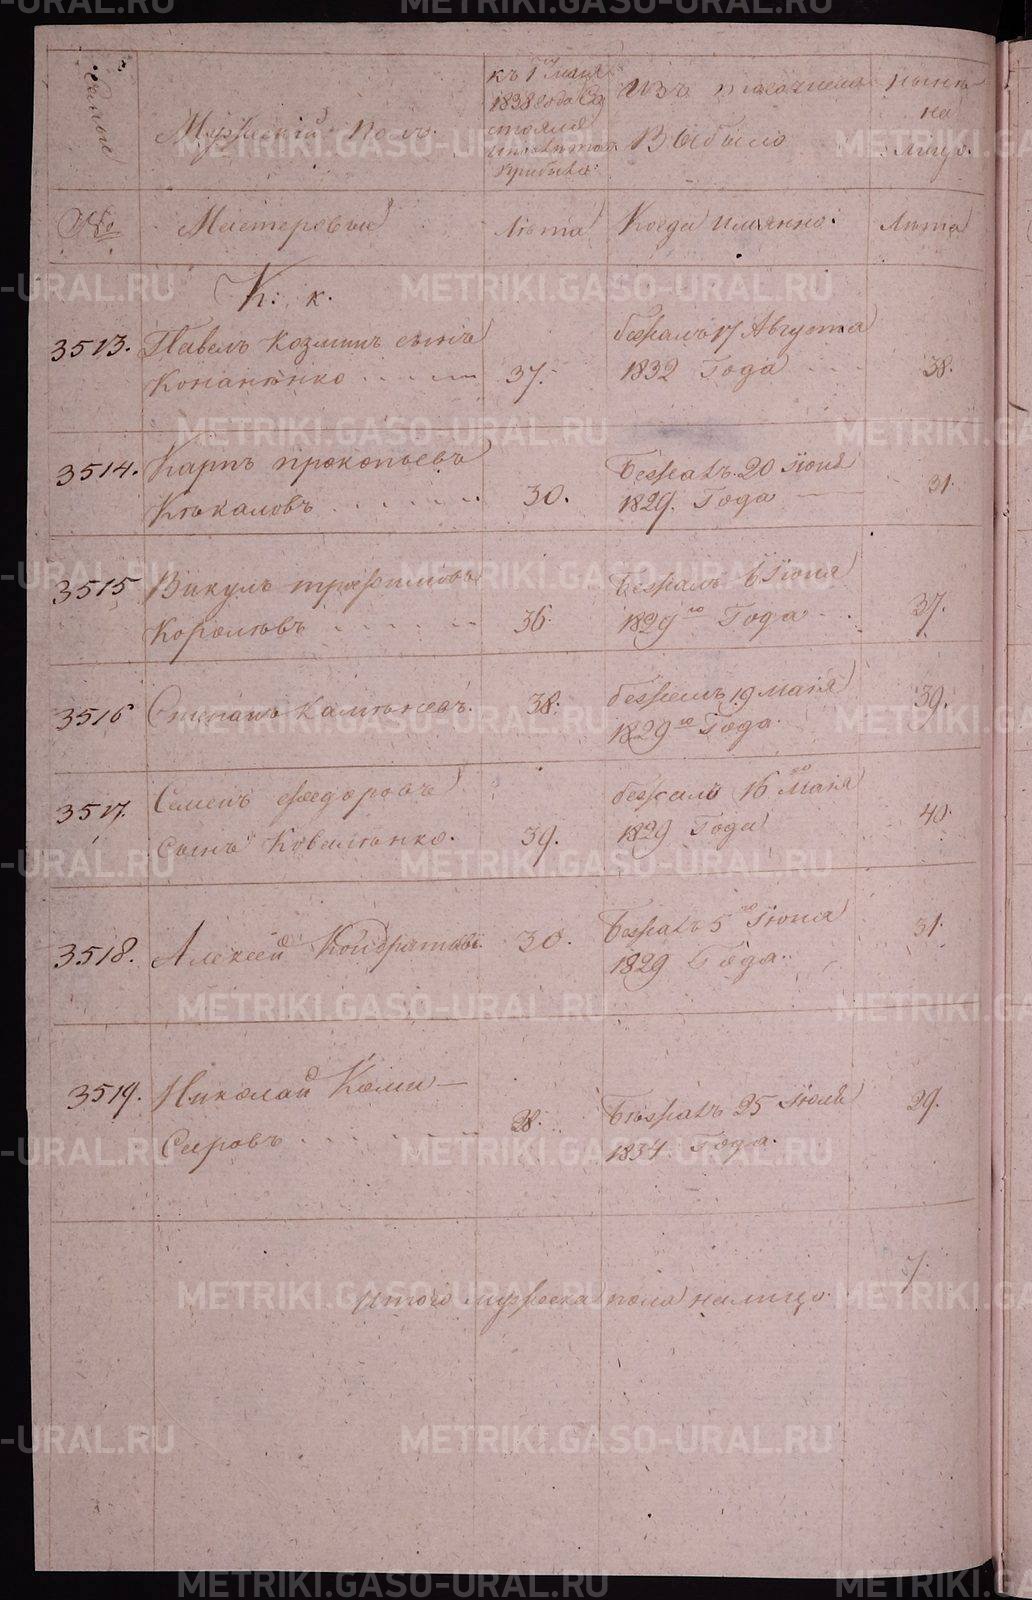 METRIKI.GASO-URAL.RU
Мужеский полъ.
къ 1му маия
1838 года Со
стояло
прибыло
Изъ тогочисла
Выбыло
нынѣ
на
лицо.
№
Мастеровыи
Лѣта
Когда имянно.
Лѣта
К. к.
3513.
Павелъ Козминъ сынъ
Конанѣнко
37.
бежалъ 17 Августа
1832 Года
38.
3514.
Карпъ прокопьевъ
Кѣкаловъ
30.
Бежалъ. 20 Июня
1829. Года
31.
3515
Викулъ трофимовъ
Королювъ
36.
Бежалъ 6 Июня
1829го Года
37.
3516
Степанъ
38.
бежалъ 19 маия
1829го Года.
39.
3517.
Семенъ федоровъ
Сынъ Ковалѣнко.
39.
бежалъ 16го Маия
1829 Года
40.
3518.
Алексей Кондратьевъ
30.
Бежалъ 5го Июня
1829 Года.
31.
3519.
Николай Коми-
Саровъ
28.
Бѣжалъ 25 Июля
1834. Года.
29.
Итого мужеска пола налицо.
7.